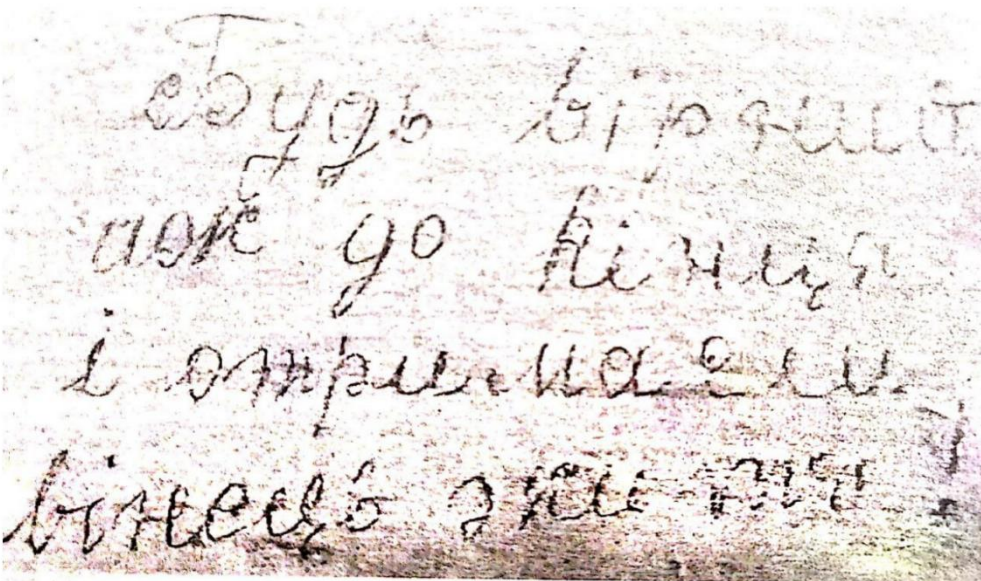 Будь вірний
аж до кінця
і отримаєш
вінець життя!